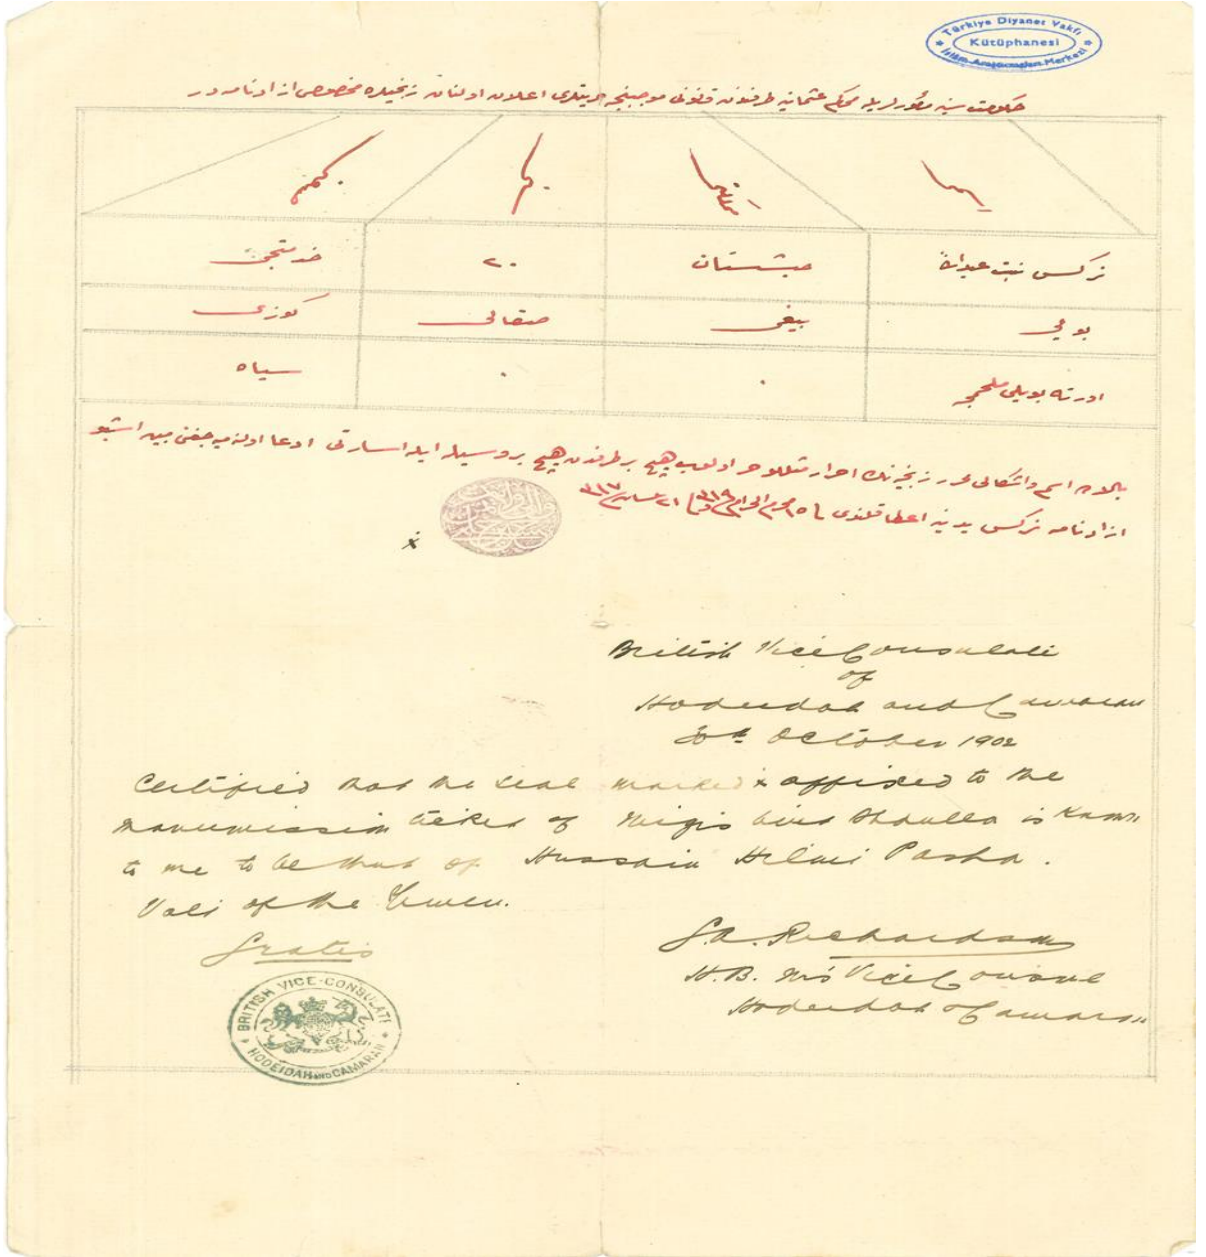 Türkiye Diyanet Vakfı
Kütüphanesi
İslâm Araştırmaları Merkezi
حكومت سنيه محاكم عثمانيه طرفندن قانونی موجبنجه حريتلری اعلان اولنان زنجيلره مخصوص ازادنامه در
نركس بنت عبدالله
حبشستان
٢٠
خدمتجی
بويی
بيغی
صقالی
كوزی
اورته بويلی
سياه
بالاده اسم واشكالی محرر زنجيه نك احرار مثللو حر اولوب هيچ بر طرفدن هيچ بر وسيله ايله اسارتی ادعا اولنه ميه جغنی مبين اشبو
ازادنامه نركس يدينه اعطا قلندی
x
British Vice Consulate
of
Hodeidah and Camaran
October 1902
Certified that the seal marked x affixed to the
manumission ticket of Nirgis bint Abdulla is known
to me to be that of Hussain Hilmi Pasha.
Vali of the Yemen.
Gratis
G.A. Richardson
H.B. M's Vice Consul
Hodeidah & Camaran
BRITISH VICE-CONSULATE
HODEIDAH AND CAMARAN